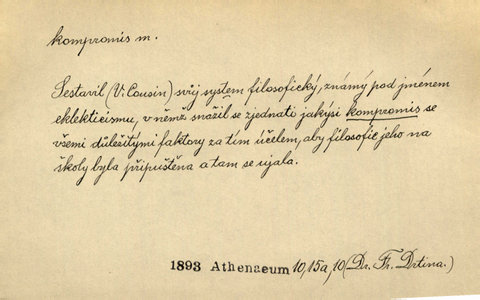 kompromis m.
Sestavil (V. Cousin) svůj system filosofický, známý pod jménem
eklekticismu, v němž snažil se zjednato jakýsi kompromis se
všemi důležitými faktory za tím účelem, aby filosofie jeho na
školy byla připuštěna a tam se ujala.
1893 Athenaeum 10, 15a, 10 (Dr. Fr. Drtina.)